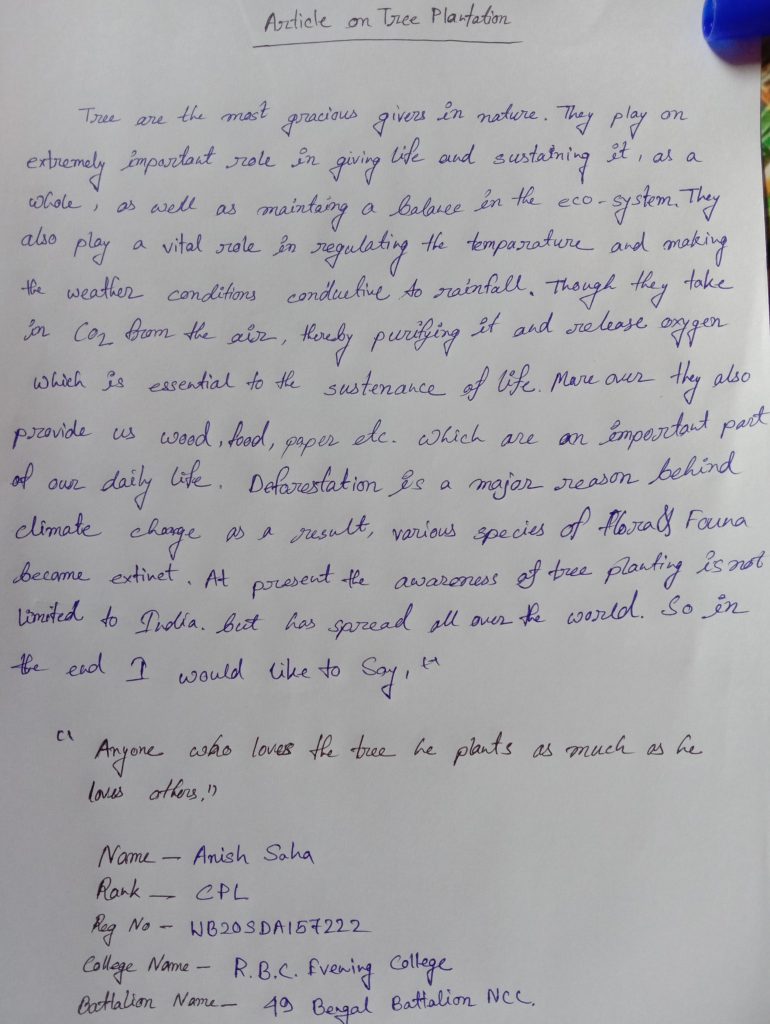 Article on Tree Plantation
Tree are the most gracious givers in nature. They play on
extremely important role in giving life and sustaining it, as a
whole, as well as maintaing a balance in the eco-system. They
also play a vital role in regulating the temparature and making
the weather conditions conductive to rainfall. Though they take
in CO2 from the air, thereby purifying it and release oxygen
which is essential to the sustenance of life. More over they also
provide us wood, food, paper etc. which are an important part
of our daily life. Deforestation is a major reason behind
climate change as a result, various species of flora & Founa
became extinct. At present the awareness of tree planting is not
limited to India. but has spread all over the world. So in
the end I would like to Say, "
" Anyone who loves the tree he plants as much as he
loves others."
Name — Anish Saha
Rank — CPL
Reg No - WB20SDA157222
College Name - R.B.C. Evening College
Battalion Name - 49 Bengal Battalion NCC.